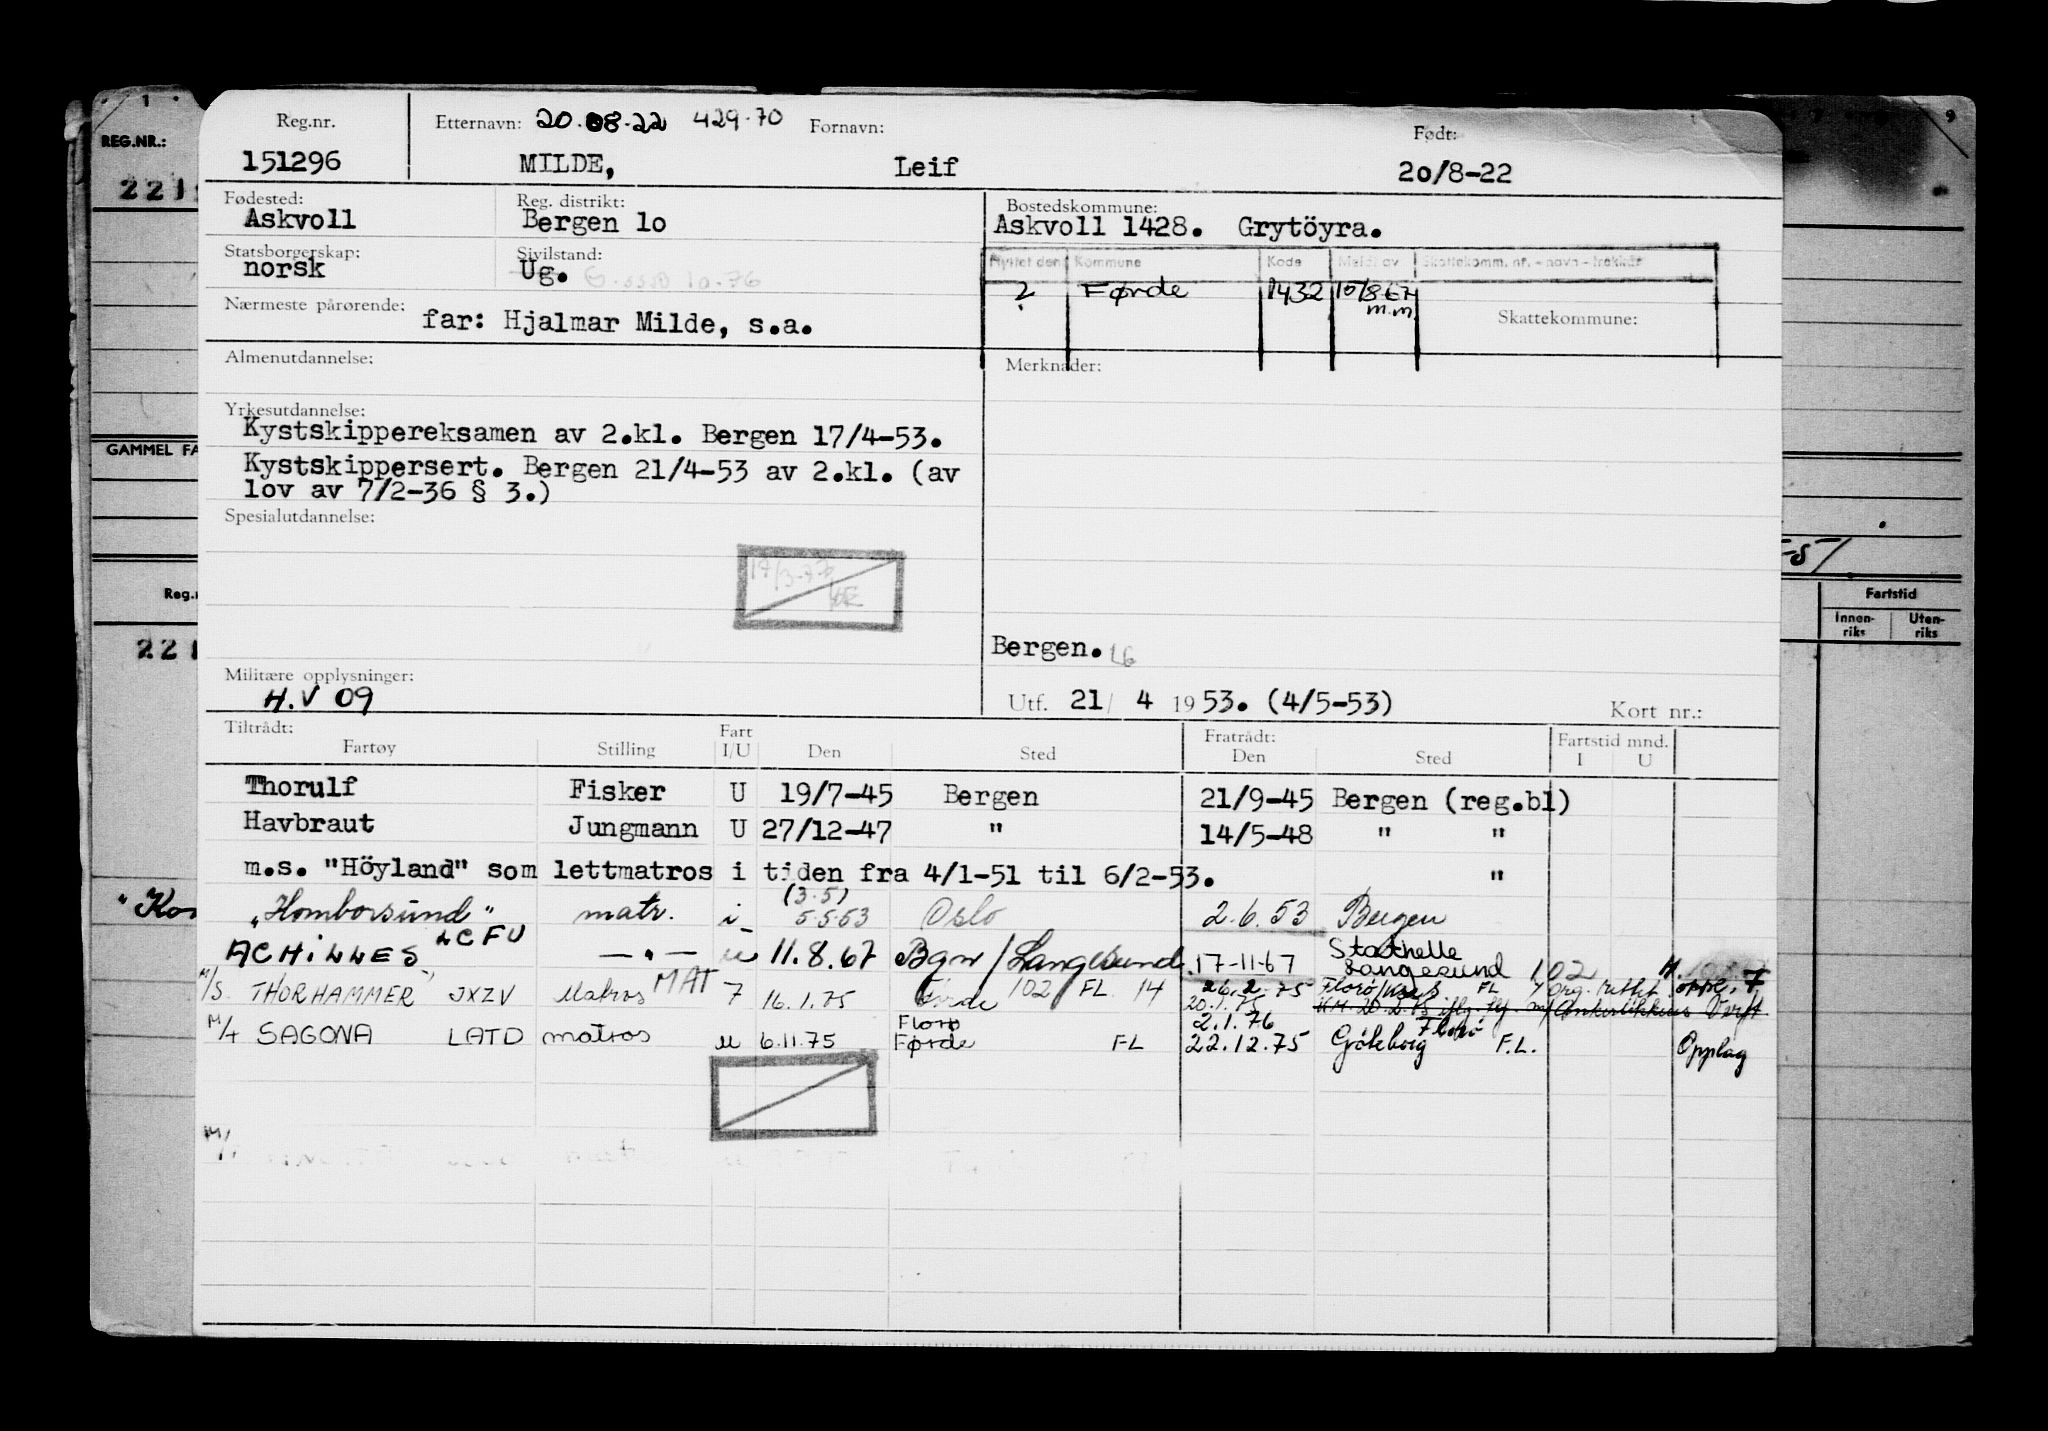 REG.NR.:
GAMMEL FA
Reg.nr. Etternavn: 20.08.22 429.70 Fornavn: Født:
151296 MILDE, Leif 20/8-22
Fødested: Reg. distrikt: Bostedskommune:
Askvoll Bergen 10 Askvoll 1428. Grytöyra.
Statsborgerskap: Sivilstand: Flyttet den Kommune Kode Meldt av Skattekomm. nr. - navn - trekkår
norsk Ug.
? Førde 1432 10/8 67 m.m.
Nærmeste pårørende: Skattekommune:
far: Hjalmar Milde, s.a.
Almenutdannelse: Merknader:
Yrkesutdannelse:
Kystskippereksamen av 2.kl. Bergen 17/4-53.
Kystskippersert. Bergen 21/4-53 av 2.kl. (av
lov av 7/2-36 § 3.)
Spesialutdannelse:
Fartstid
Innen-riks Uten-riks
Bergen.
Militære opplysninger:
H.V 09 Utf. 21/ 4 1953. (4/5-53) Kort nr.:
Tiltrådt: Fratrådt: Fartstid mnd.
Fartøy Stilling Fart I/U Den Sted Den Sted I U
Thorulf Fisker U 19/7-45 Bergen 21/9-45 Bergen (reg.bl)
Havbraut Jungmann U 27/12-47 " 14/5-48 " "
m.s. "Höyland" som lettmatros i tiden fra 4/1-51 til 6/2-53. "
(3.5)
"Homborsund" matr. i 5.5.53 Oslo 2.6.53 Bergen
ACHILLES LCFU —"— u 11.8.67 Bgn/Langesund 17-11-67 Stathelle Langesund 102
M/S THORHAMMER JXZV Matros MAT 7 16.1.75 Førde 102 FL 14 26.2.75 Florø FL
20.1.75
M/T SAGONA LATD matros u 6.11.75 Florø Førde FL 2.1.76 22.12.75 Florø Göteborg F.L. Opplag
M/